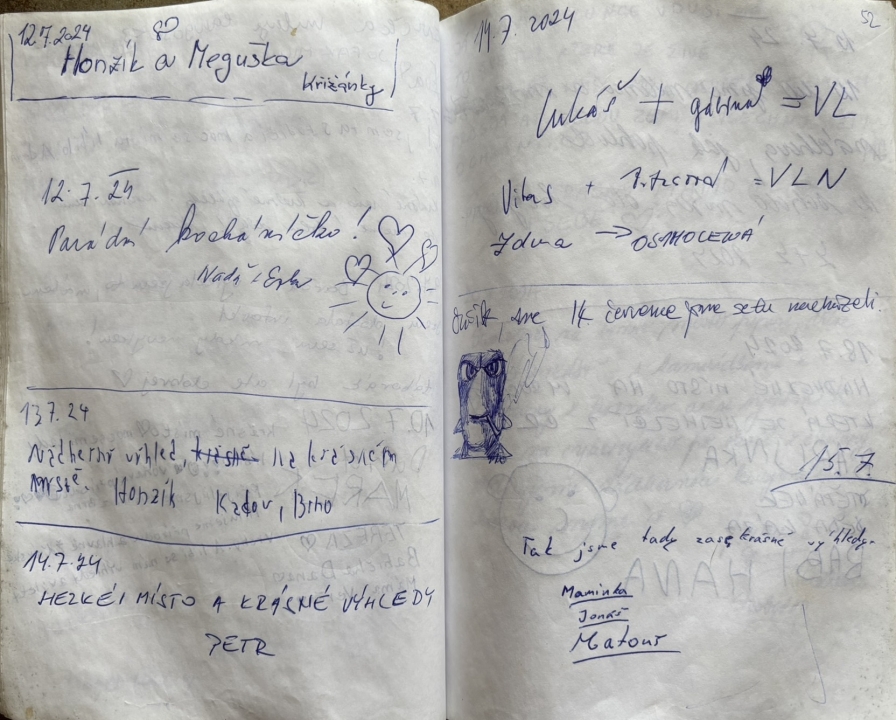 12.7.2024
Honzík a Meguška
Křižánky
12.7.24
Parádní kocháníčko!
13.7.24
Nádherný výhled krásné na krásném
místě. Honzík Kadov, Brno
14.7.24
HEZKÉ MÍSTO A KRÁSNÉ VÝHLEDY
PETR
14.7.2024
52
Lukáš + = VL
+ = VLN
→ OSAMOCENÁ
14. července jsme se tu nacházeli.
15.7.
Tak jsme tady zase krásné výhledy.
Maminka
Jonáš
Matouš